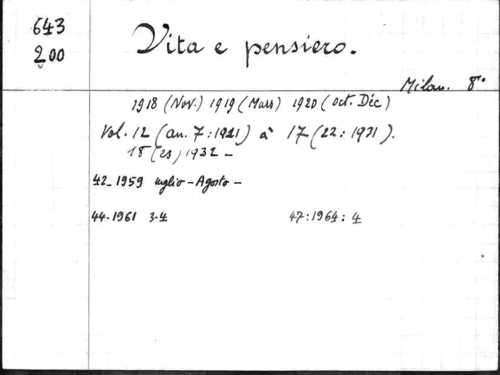 643
200
Vita e pensiero.
Milan. 8°
1918 (Nov.) 1919 (Mars) 1920 (Oct. Déc)
Vol. 12 (an. 7:1921) à 17 (22:1931).
18 (23) 1932 -
42_1959 luglio - Agosto -
44.1961 3-4 47:1964:4